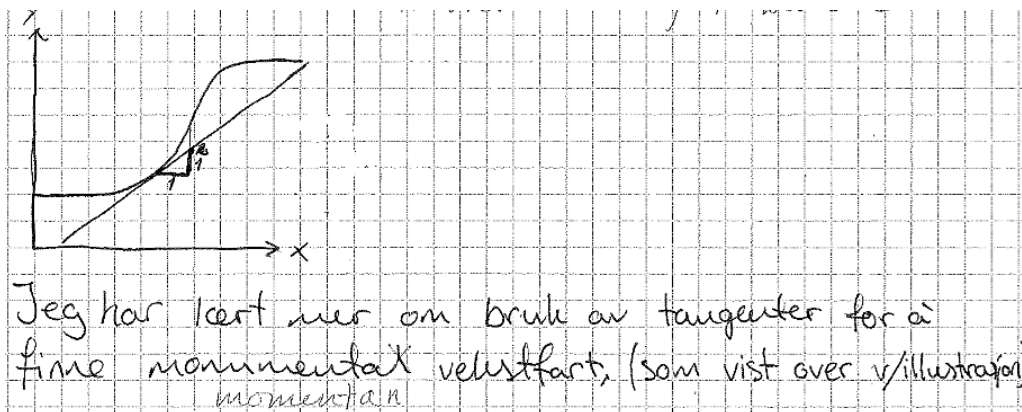 y
x
1
1
Jeg har lært mer om bruk av tangenter for å
finne monumental vekstfart, (som vist over v/illustrasjon)
momentan